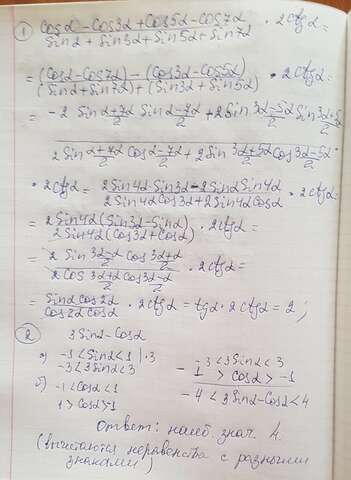 ① cosα - cos3α + cos5α - cos7α / sinα + sin3α + sin5α + sin7α · 2ctgα =
= (cosα - cos7α) - (cos3α - cos5α) / (sinα + sin7α) + (sin3α + sin5α) · 2ctgα =
= -2 sin α+7α/2 sin α-7α/2 + 2 sin 3α-5α/2 sin 3α+5α/2
2 sin α+7α/2 cos α-7α/2 + 2 sin 3α+5α/2 cos 3α-5α/2 ·
· 2ctgα = 2 sin4α sin3α - 2 sinα sin4α / 2 sin4α cos3α + 2 sin4α cosα · 2ctgα =
= 2 sin4α (sin3α - sinα) / 2 sin4α (cos3α + cosα) · 2ctgα =
= 2 sin 3α-α/2 cos 3α+α/2 / 2 cos 3α+α/2 cos 3α-α/2 · 2ctgα =
= sinα cos2α / cos2α cosα · 2ctgα = tgα · 2ctgα = 2 ;
② 3 sinα - cosα
а) -1 < sinα < 1 | · 3
-3 < 3 sinα < 3
б) -1 < cosα < 1
1 > cosα > -1
-3 < 3 sinα < 3
- 1 > cosα > -1
-4 < 3 sinα - cosα < 4
Ответ: наиб. знач. 4.
(вычитаются неравенства с разными
знаками)